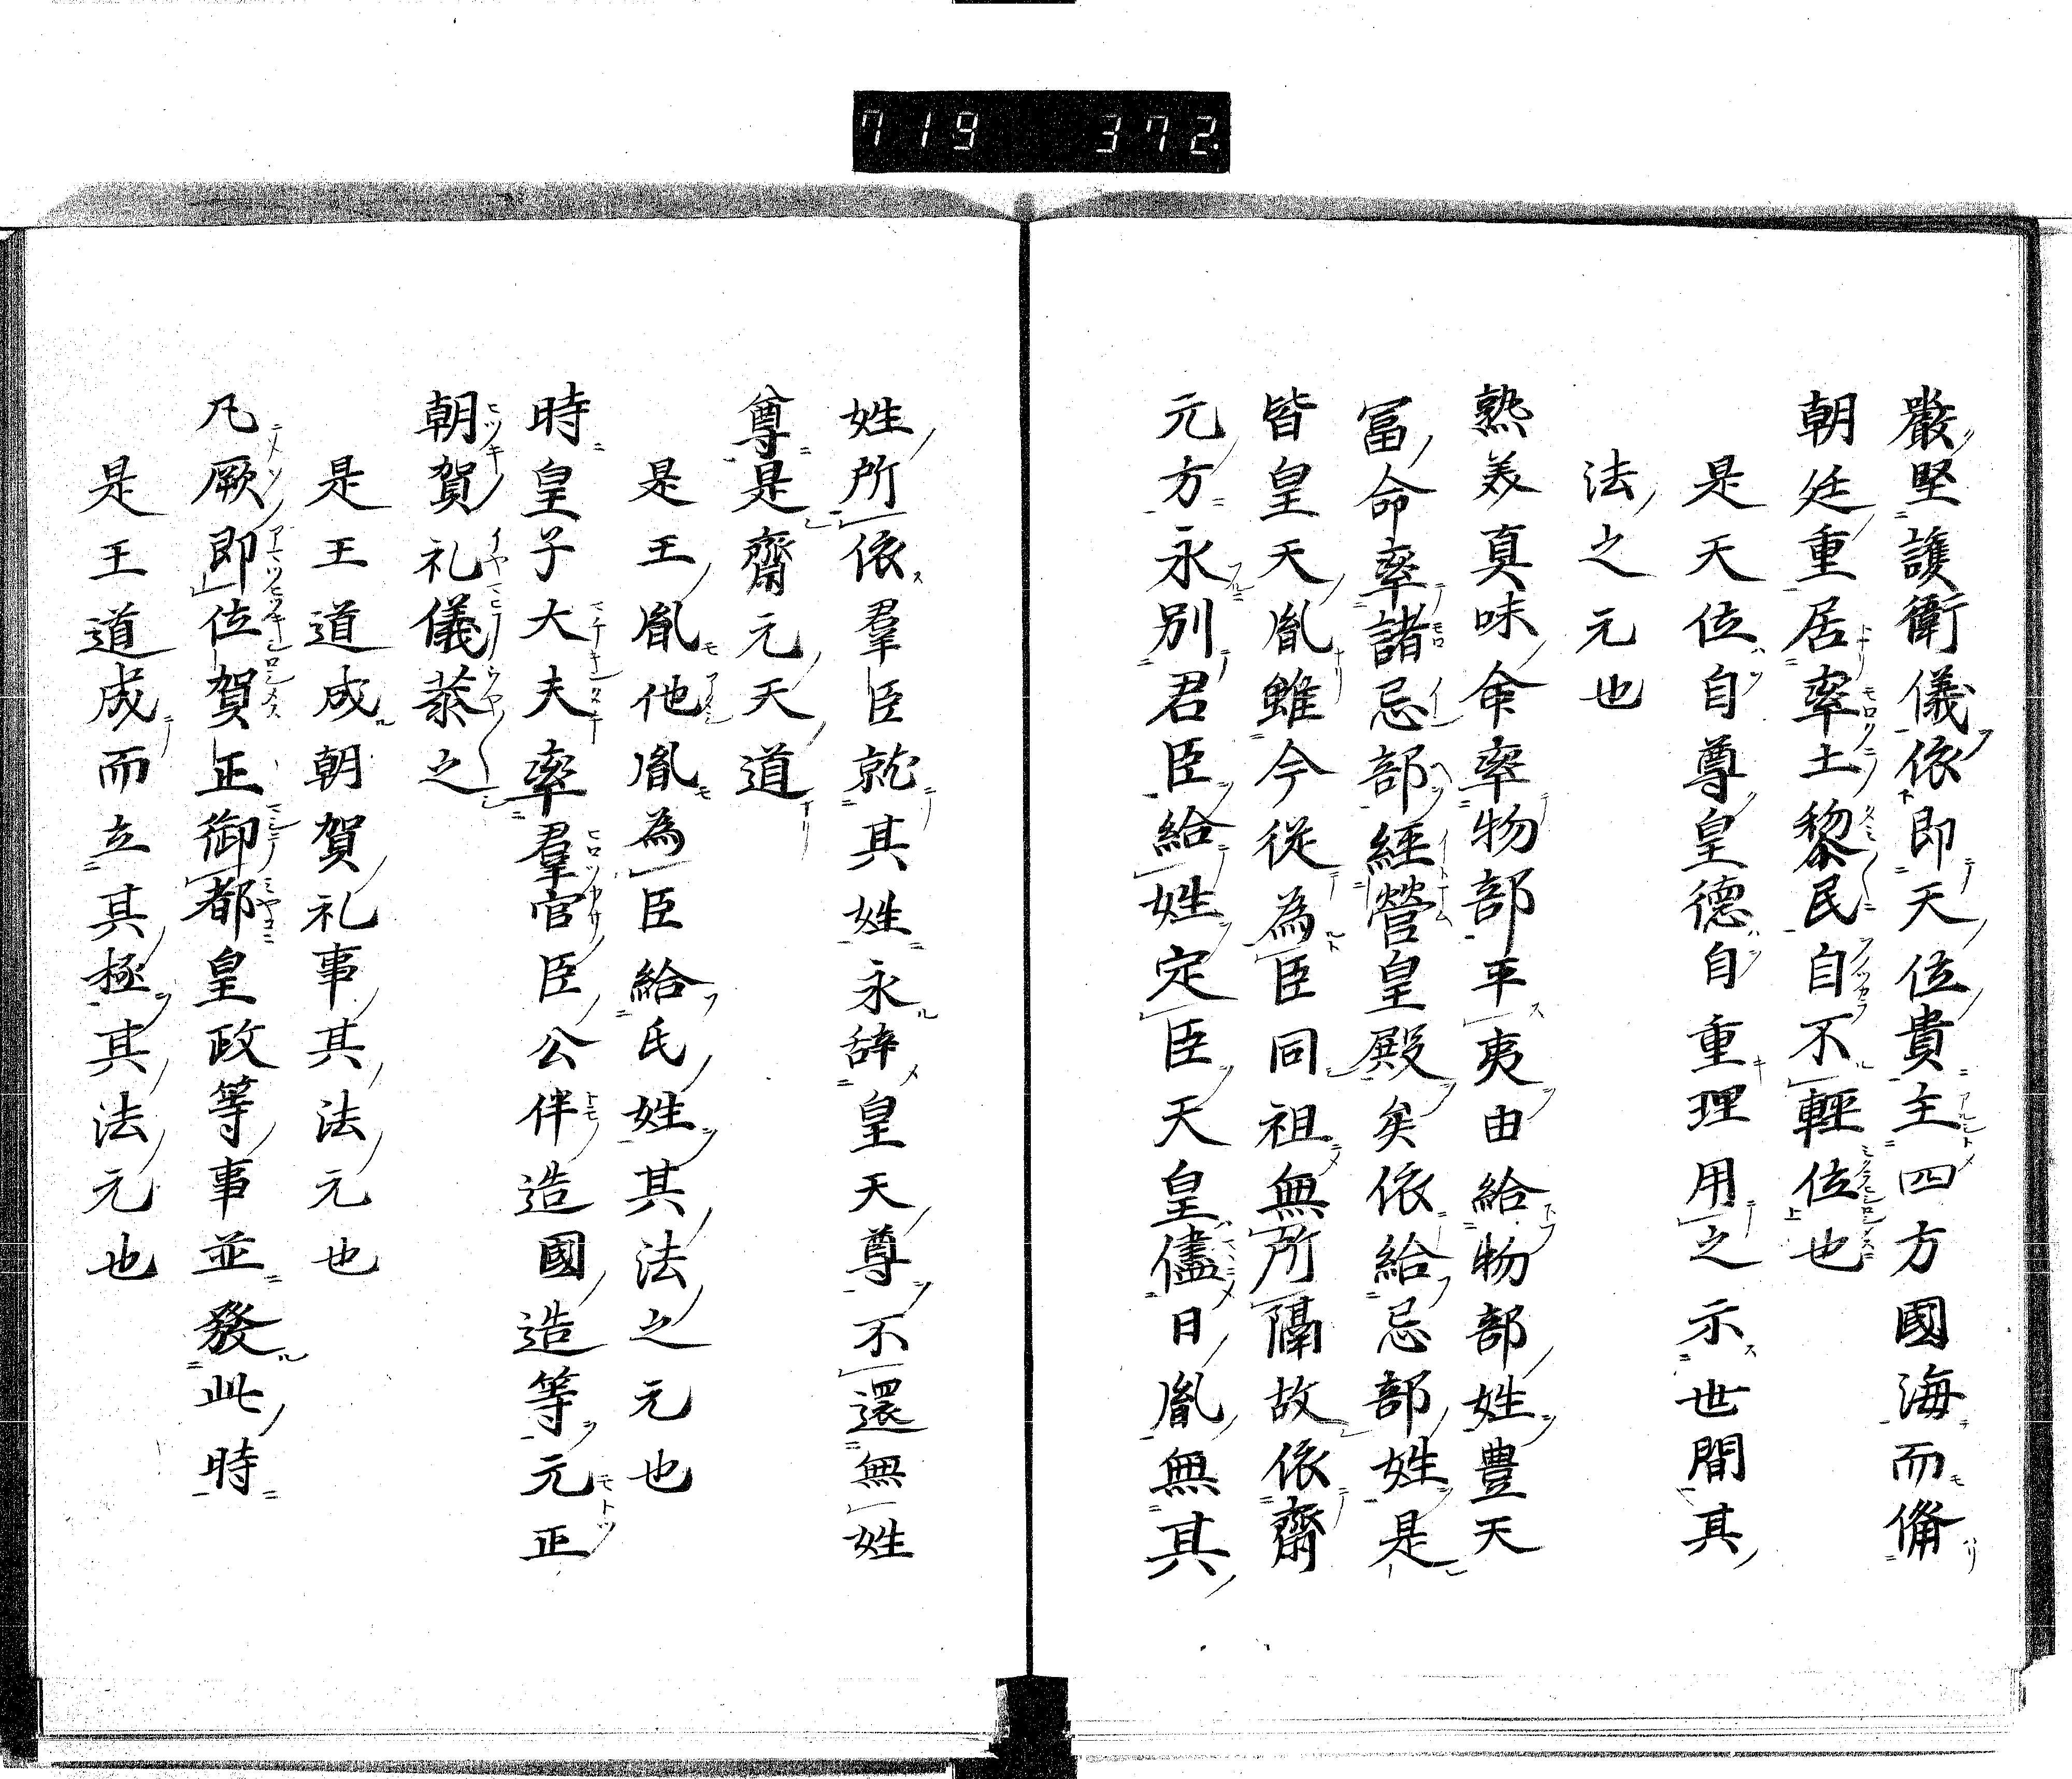 719 372
嚴堅護衛儀依即天位貴主四方國海而備
朝廷重居率土黎民自不輕位也
是天位自尊皇德自重理用之示世間其
法之元也
熟美真味命率物部平夷由給物部姓豊天
冨命率諸忌部經營皇殿矣依給忌部姓是
皆皇天胤雖今従為臣同祖無所隔故依齋
元方永別君臣給姓定臣天皇儘日胤無其
姓所依羣臣就其姓永辞皇天尊不還無姓
尊是齋元天道
是王胤他胤為臣給氏姓其法之元也
時皇子大夫率羣官臣公伴造國造等元正
朝賀礼儀恭之
是王道成朝賀礼事其法元也
凡厥即位賀正御都皇政等事並發此時
是王道成而立其極其法元也